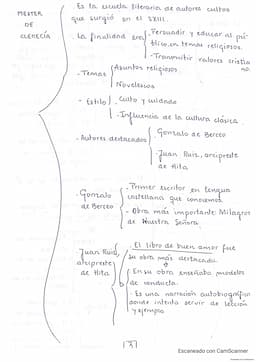 MESTER
DE
CLERECÍA
- Es la escuela literaria de autores cultos
que surgió en el SXIII.
- La finalidad era
- Persuadir y educar al pú-
blico, en temas religiosos.
- Transmitir valores cristia
nos.
- Temas
Asuntos religiosos
Novelescos
- Estilo
- Culto y cuidado
- Influencia de la cultura clásica.
- Autores destacados
- Gonzalo de Berceo
- Juan Ruiz, arcipreste
de Hita.
- Gonzalo
de Berceo
- Primer escritor en lengua
castellana que conocemos.
- Obra más importante: Milagros
de Nuestra Señora
- Juan Ruiz,
arcipreste
de Hita
- El libro de buen amor fue
su obra más destacada.
- En su obra enseñaba modelos
de conducta.
- Es una narración autobiográfica
donde intenta servir de lección
y ejemplo
131
Escaneado con CamScanner